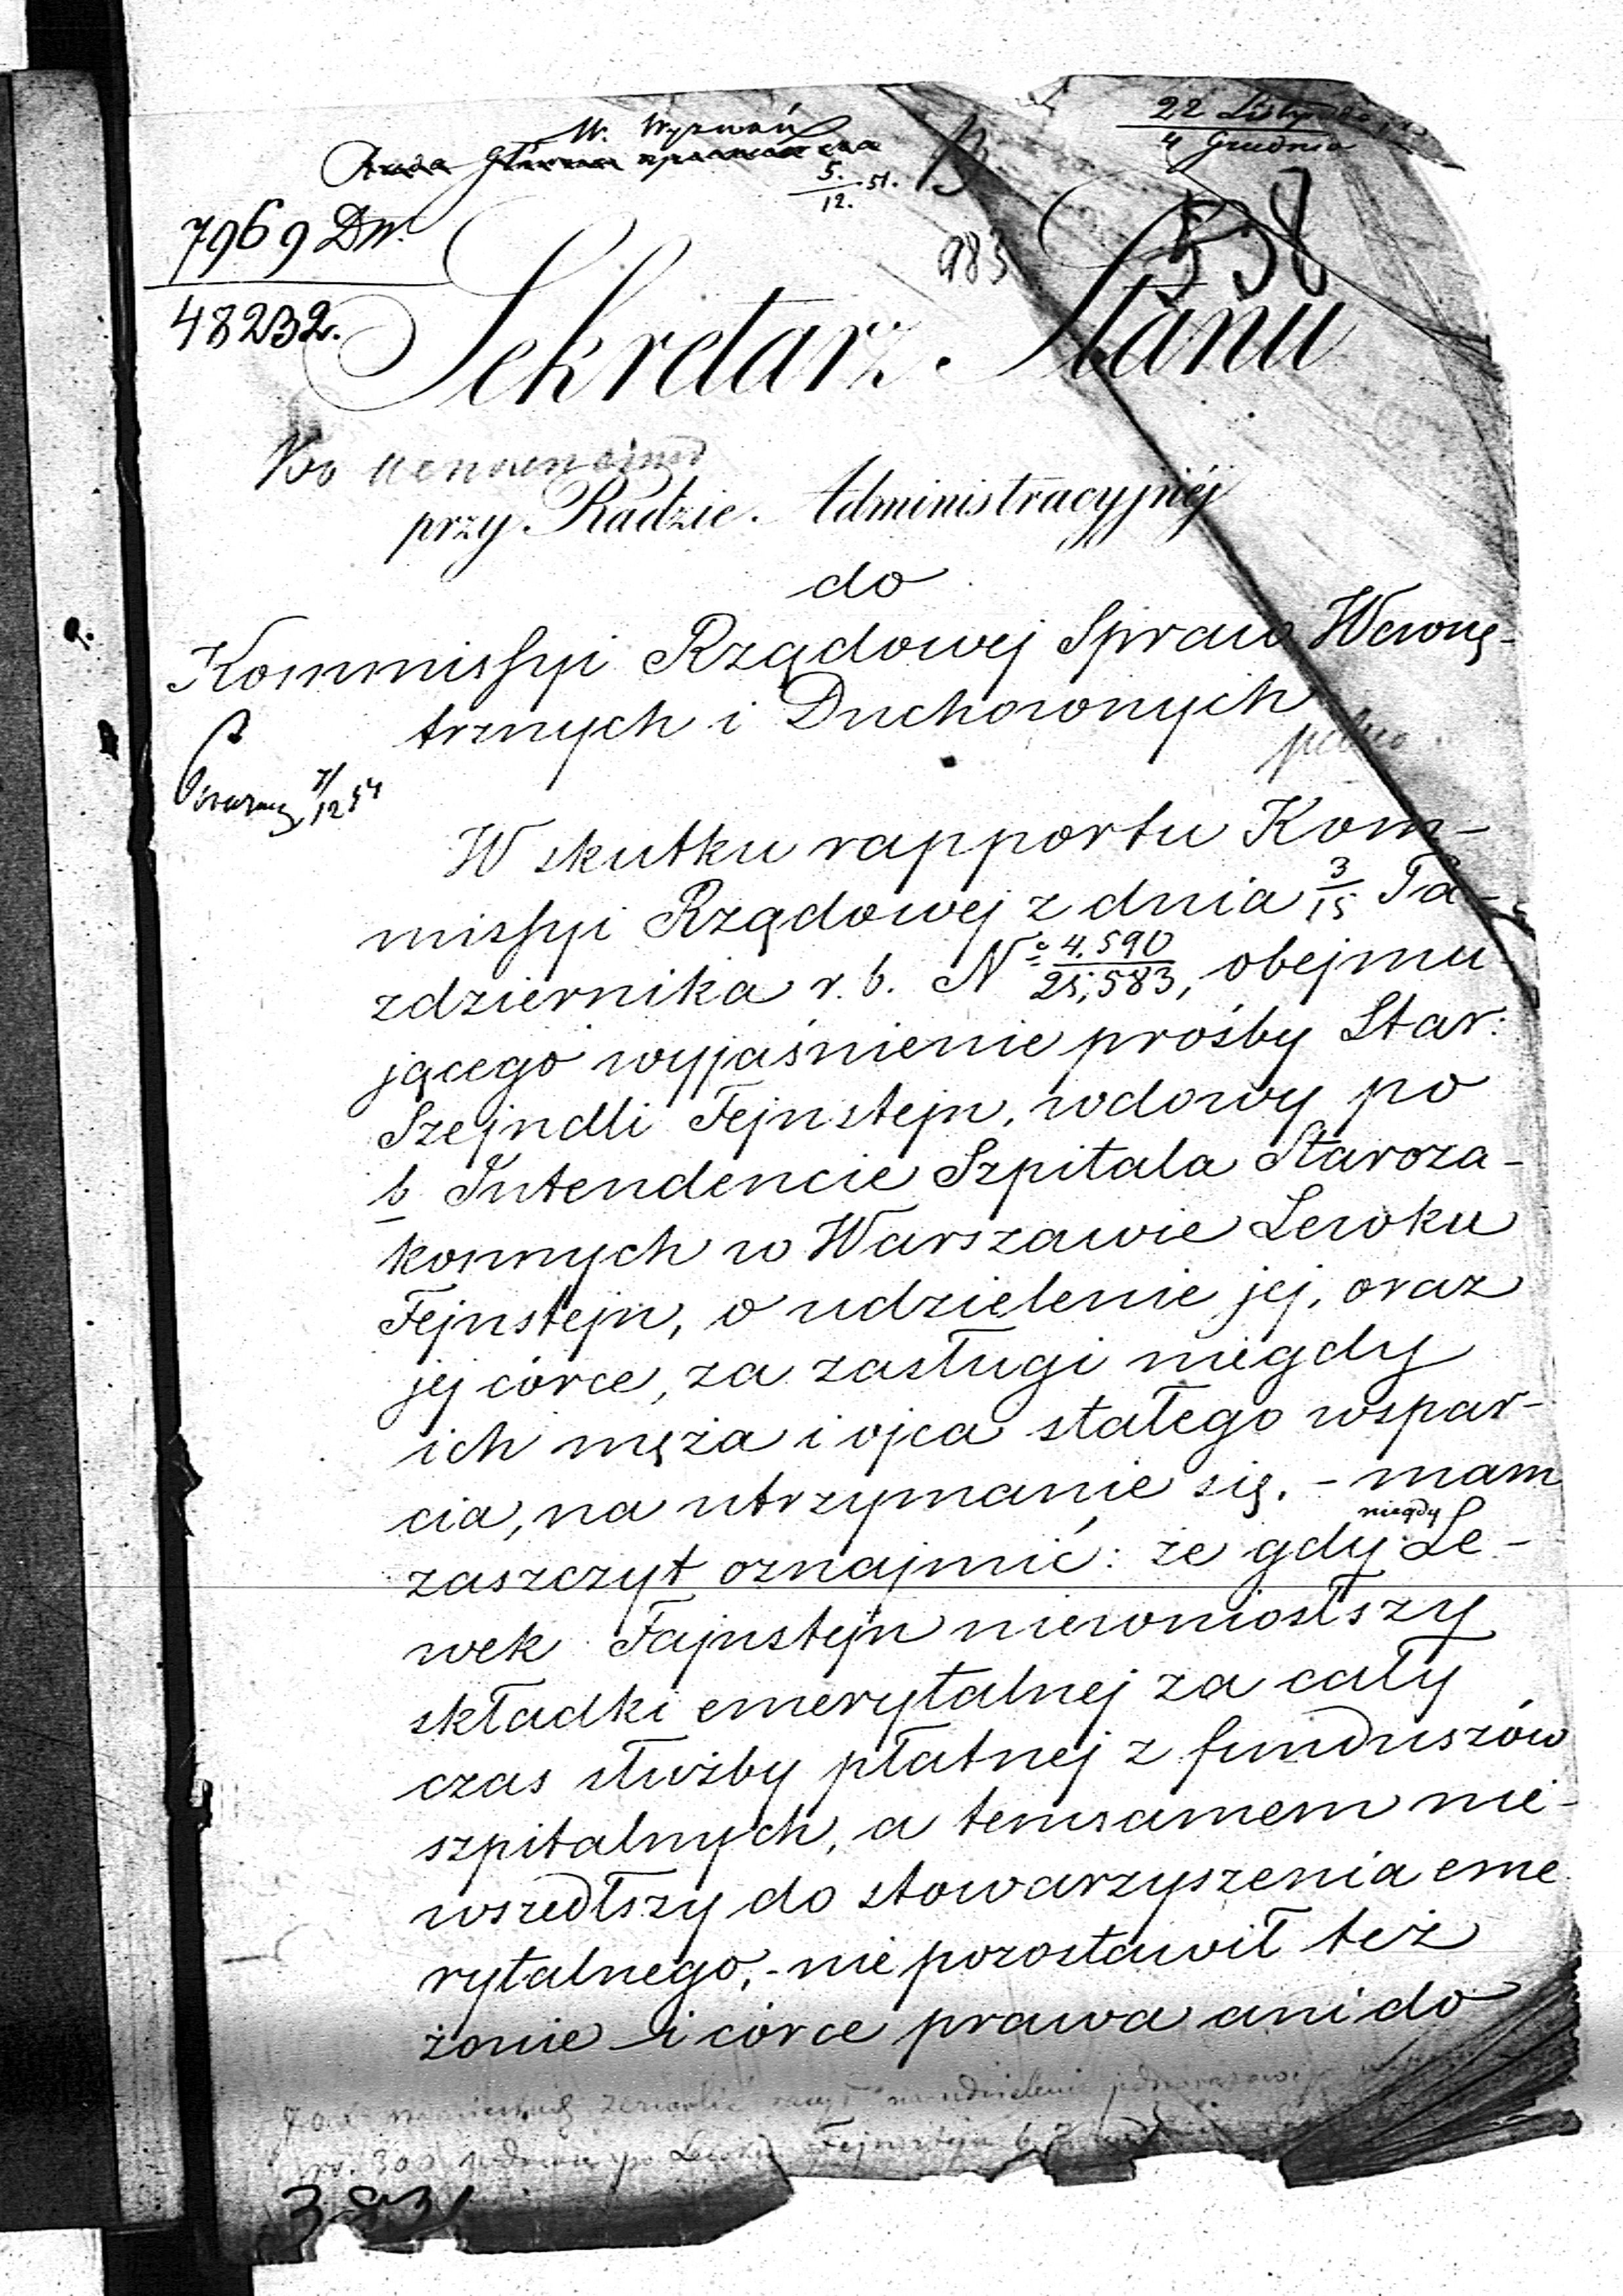 W. Wyznań
5./12. 51.
22 Listopada
4 Grudnia
7969 Dw.
48232.
983
538
Sekretarz Stanu
przy Radzie Administracyjnéj
do
Kommissyi Rządowej Spraw Wewnę-
trznych i Duchownych
7/12 54
W skutku rapportu Kom-
missyi Rządowej z dnia 3/15 Pa-
zdziernika r. b. No 4.590/25,583, obejmu-
jącego wyjaśnienie prośby Star:
Szejndli Fejnstejn, wdowy po
b. Intendencie Szpitala Staroza-
konnych w Warszawie Lewku
Fejnstejn, o udzielenie jej, oraz
jej córce, za zasługi niegdy
ich męża i ojca stałego wspar-
cia, na utrzymanie się. - mam
zaszczyt oznajmić: że gdy niegdy Le-
wek Fajnstejn niewniosłszy
składki emerytalnej za cały
czas służby płatnej z funduszów
szpitalnych, a temsamem nie-
wszedłszy do stowarzyszenia eme
rytalnego, - nie pozostawił też
żonie i córce prawa ani do
zezwolić raczył na udzielenie
rs. 300 wdowie po Lewku Fejnstejn b.
3831